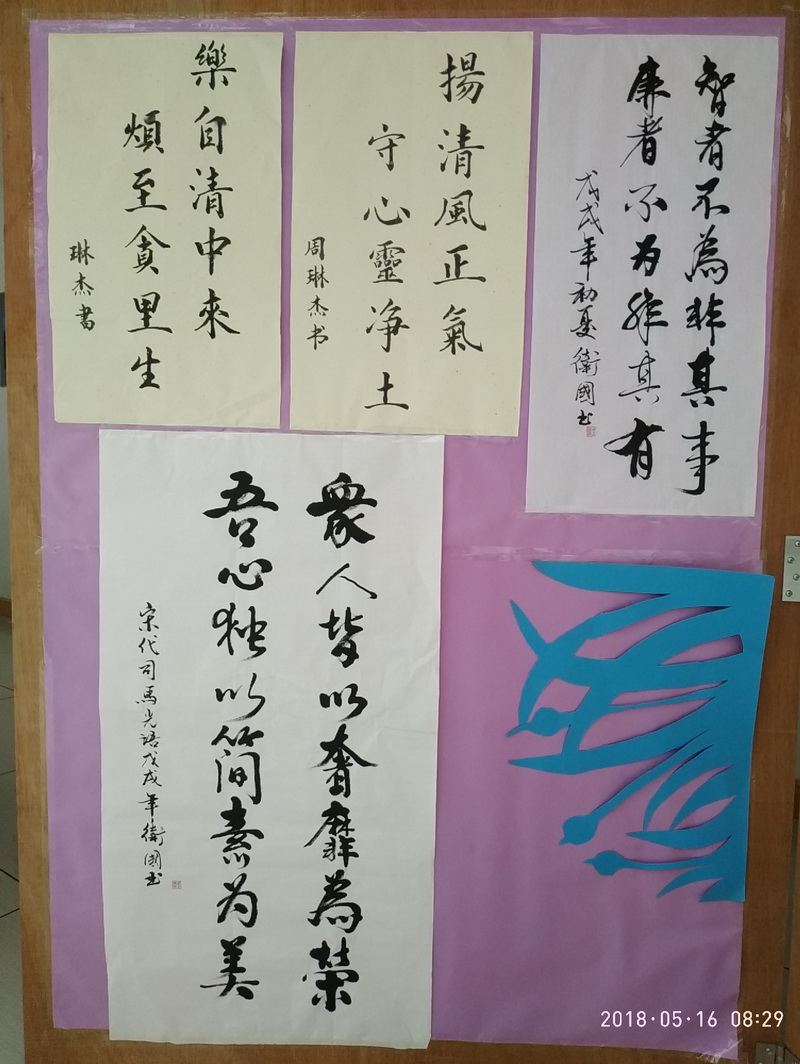 智者不為非其事
廉者不为非其有
戊戌年初夏衛國书
揚清風正氣
守心靈净土
周琳杰书
樂自清中來
煩至貪里生
琳杰書
衆人皆以奢靡為榮
吾心独以简素为美
宋代司馬光語戊戌年衛國书
2018·05·16 08:29